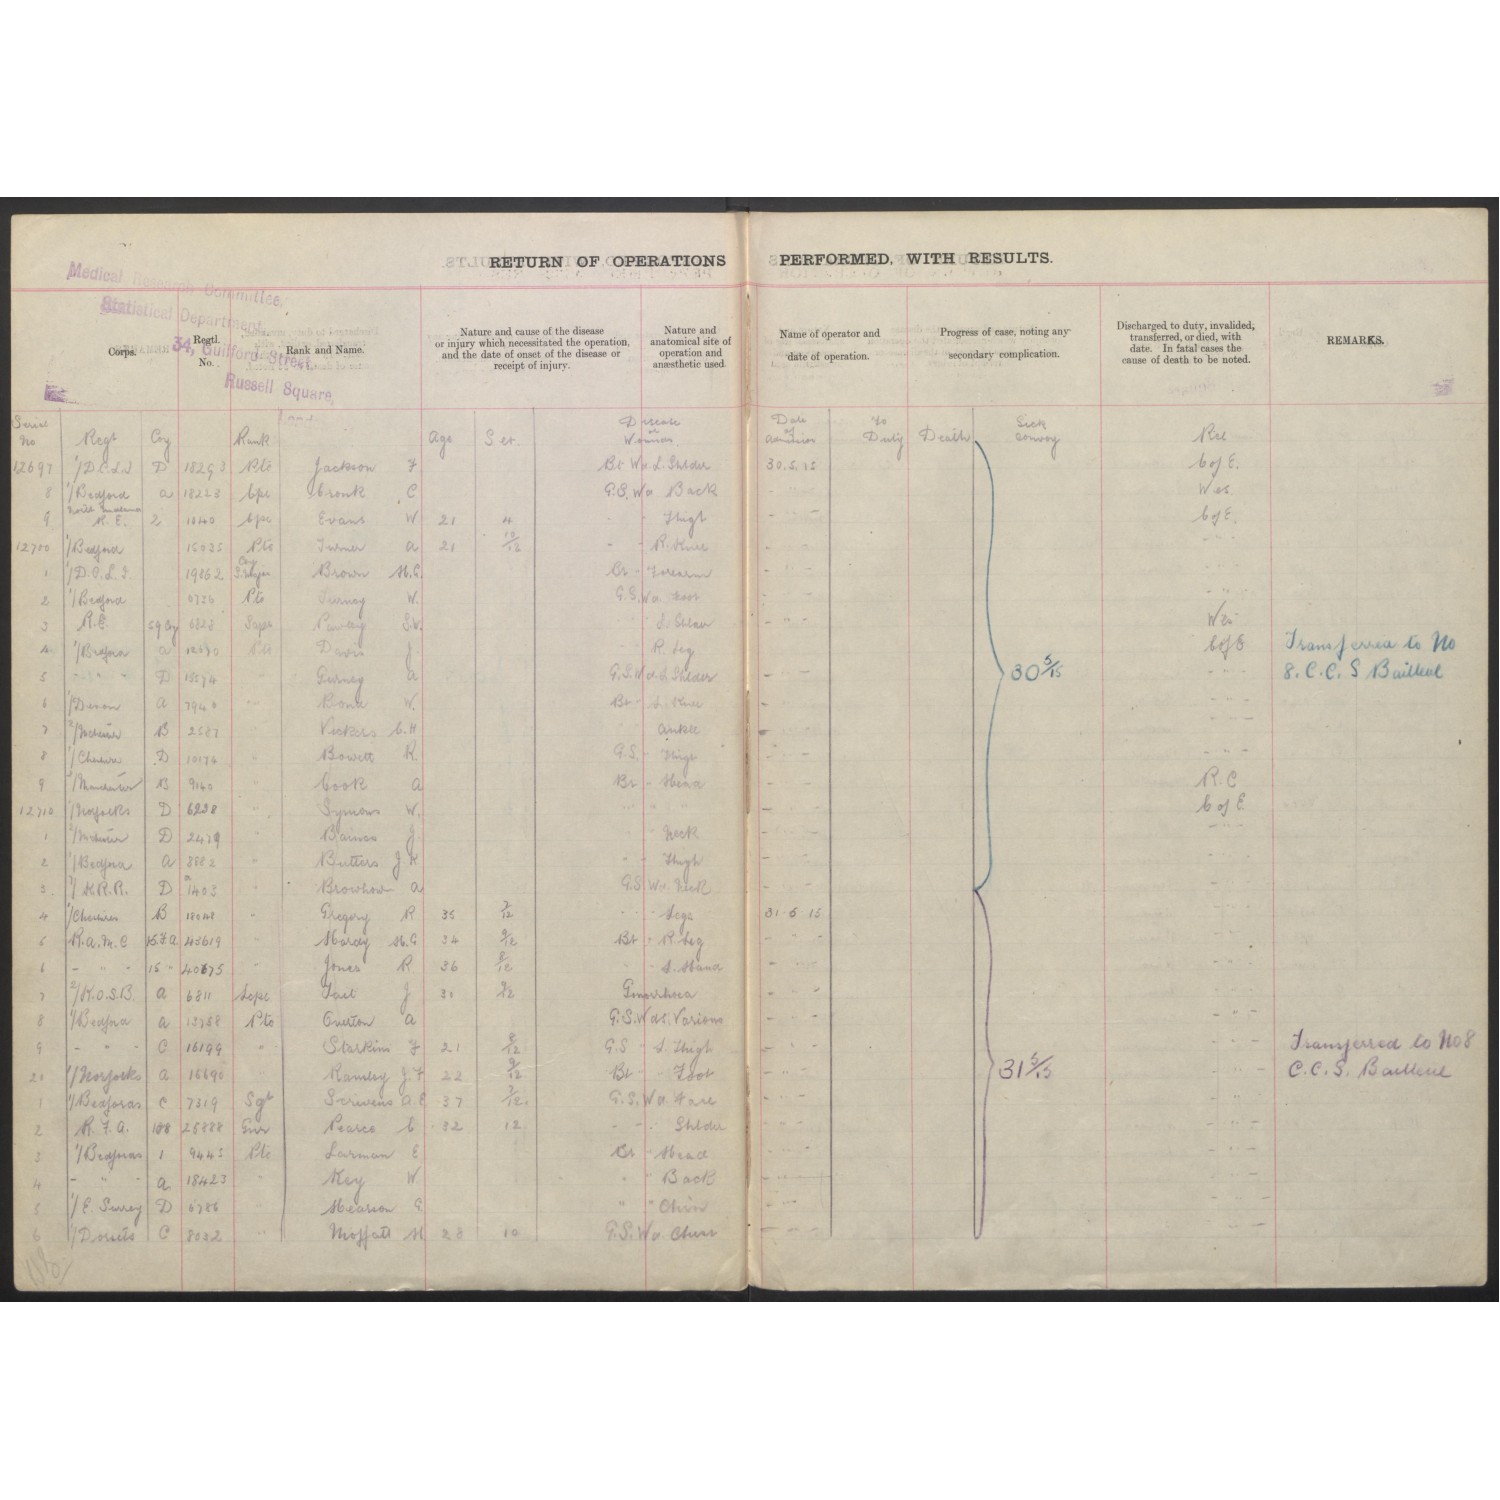 RETURN OF OPERATIONS PERFORMED, WITH RESULTS.
Medical Research Committee,
Statistical Department,
34, Guilford Street,
Russell Square,
Corps. Regtl. No. Rank and Name. Nature and cause of the disease or injury which necessitated the operation, and the date of onset of the disease or receipt of injury. Nature and anatomical site of operation and anæsthetic used. Name of operator and date of operation. Progress of case, noting any secondary complication. Discharged to duty, invalided, transferred, or died, with date. In fatal cases the cause of death to be noted. REMARKS.
Serial No Regt Coy Rank Age Ser. Disease or Wounds. Date of admission To Duty Death Sick convoy Rel
12697 1/D.C.L.I D 18293 Pte Jackson F Bt Wd L. Shlder 30.5.15 C of E.
8 1/Bedford a 18223 Cpl Cronk C G.S. Wd Back Wes
9 North Midland R.E. 2 1040 Cpl Evans W 21 4 Thigh C of E.
12700 1/Bedford 15025 Pte Turner a 21 10/12 R. Knee
1 1/D.C.L.I. 19862 Brown H.G. Bt Forearm
2 1/Bedford Pte W. G.S. Wd. Foot
3 R.E. 59 Coy 6828 Sapr S.W. L. Shlder Wes
4 1/Bedford a Pte Davis J. R. Leg C of E
5 " " " D 15574 Gurney a G.S. Wd. L. Shlder
6 1/Devon A 7940 Bond W. Bt L. Knee
7 B 2587 Vickers C.H ankle
8 1/Cheshire D 10174 Bowett R. G.S. Thigh
9 2/Manchester B 9140 Cook a Bt Head R.C
12710 1/Norfolks D 6238 Symons W. C of E.
1 D 2479 Baines J. Neck
2 1/Bedford a 8882 Butters J H Thigh
3. K.R.R. D 1403 Browhow a G.S. Wd. Neck
4 1/Cheshires B 18048 Gregory R 35 7/12 Legs 31-5-15
5 R.A.M.C 15.F.A 43619 Hardy H.G 34 9/12 Bt R. Leg
6 - " - 15 - 40675 Jones R 36 8/12 L. Hand
7 2/K.O.S.B. a 6811 Lcpl Tait J 31 9/12 Gonorrhoea
8 1/Bedford a 13758 Pte Overton a G.S. Wds. Various
9 - " - C 16199 Starkins F 21 8/12 G.S L. Thigh
20 1/Norfolks a 16690 Ramsey J.F 22 9/12 Bt Foot
1 1/Bedfords C 7319 Sgt Scrivens a.E 37 7/12. G.S. Wd. Face
2 R.F.A. 108 25888 Gnr Pearce C 32 12. Shlder
3 1/Bedfords 1 9445 Pte Larman E Bt Head
4 - " - a 18423 Key W Back
5 1/E. Surrey D 6786 Hearson G Chin
6 1/Dorsets C 8022 Moffatt H 28 10 G.S. Wd. Chest
30 5/15
Transferred to No
8. C.C.S Bailleul
31 5/15
Transferred to No 8
C.C.S. Bailleul